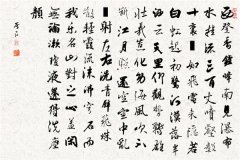 西登香爐峰南見瀑布
水挂流三百丈噴壑數
十里欻如飛電來隱若
白虹起初驚河漢落半
灑雲天裏仰觀勢轉雄
壯哉造化功海風吹不
斷江月照還空空中亂
射左右洗青壁飛珠
散輕霞流沫沸穹石而
我樂名山對之心益閑
無論漱瓊液還得洗塵
顏